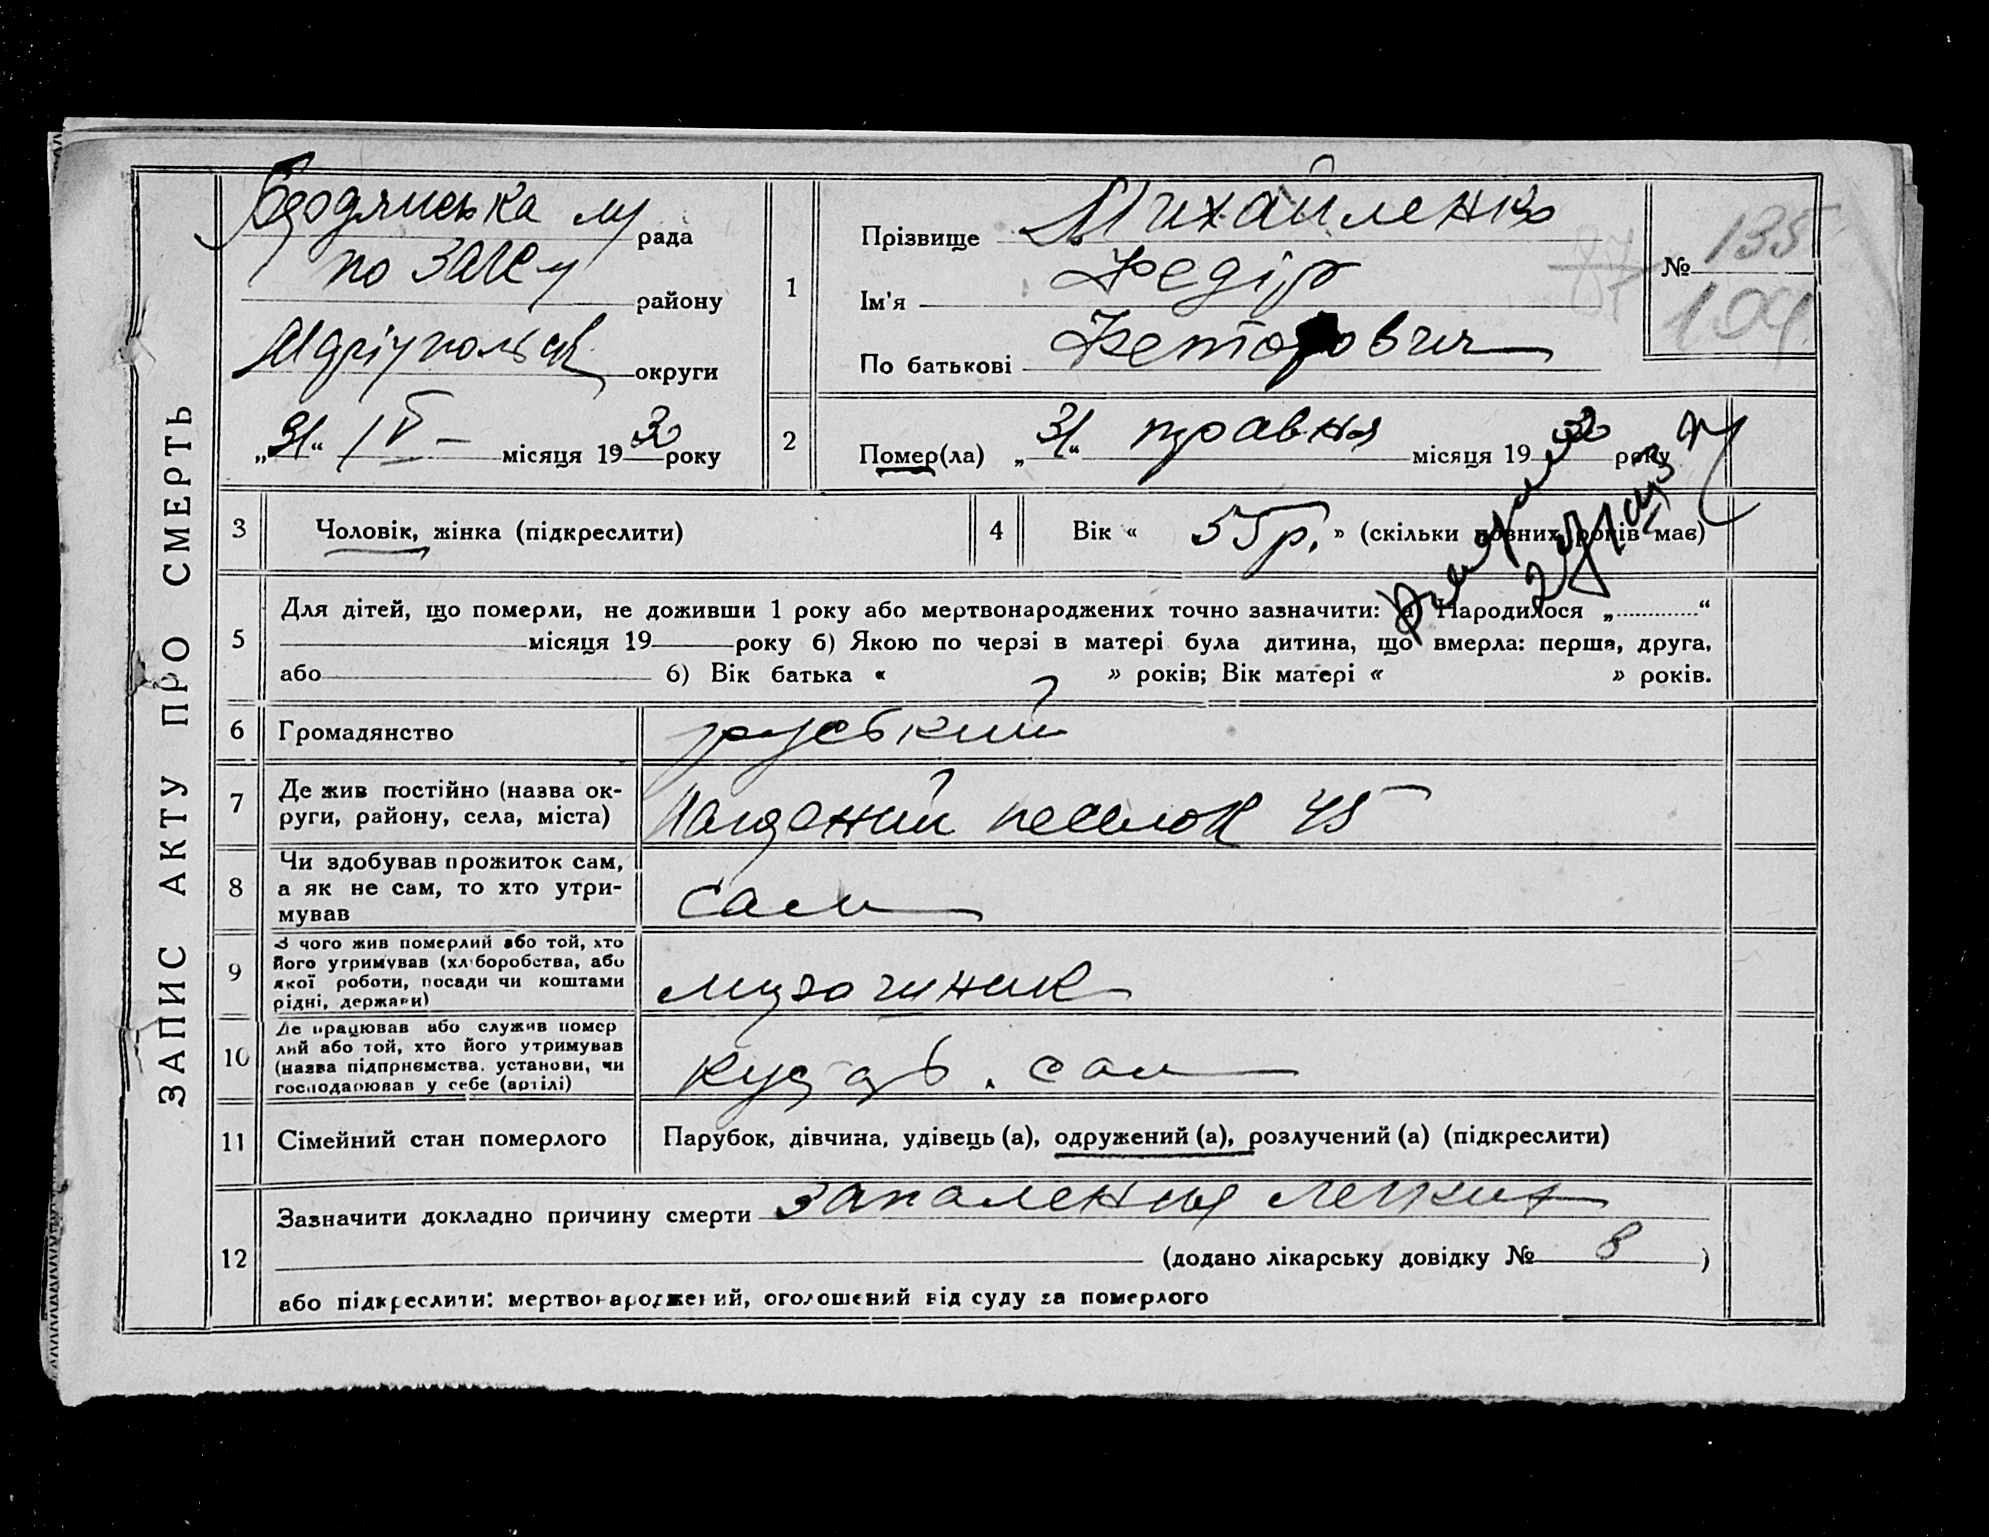 ЗАПИС АКТУ ПРО СМЕРТЬ
Бердянська м/рада
по ЗАГСу району
Маріупольськ округи
„31“ IV місяця 1930 року
1
Прізвище Михайленко
Ім'я Федір
По батькові
№ 135
104
2
Помер(ла) „31“ травня місяця 1930 року
3
Чоловік, жінка (підкреслити)
4
Вік « 55 р. » (скільки повних років має)
5
Для дітей, що померли, не доживши 1 року або мертвонароджених точно зазначити: а) Народилося „ “
місяця 19 року б) Якою по черзі в матері була дитина, що вмерла: перша, друга,
або б) Вік батька « » років; Вік матері « » років.
6
Громадянство руський
7
Де жив постійно (назва ок-
руги, району, села, міста)
45
8
Чи здобував прожиток сам,
а як не сам, то хто утри-
мував
сам
9
З чого жив померлий або той, хто
його утримував (хліборобства, або
якої роботи, посади чи коштами
рідні, держави)
10
Де працював або служив помер
лий або той, хто його утримував
(назва підприємства, установи, чи
господарював у себе (артілі)
кустарь. сам
11
Сімейний стан померлого
Парубок, дівчина, удівець (а), одружений (а), розлучений (а) (підкреслити)
12
Зазначити докладно причину смерти запалення легких
(додано лікарську довідку № 8 )
або підкреслити: мертвонароджений, оголошений від суду за померлого